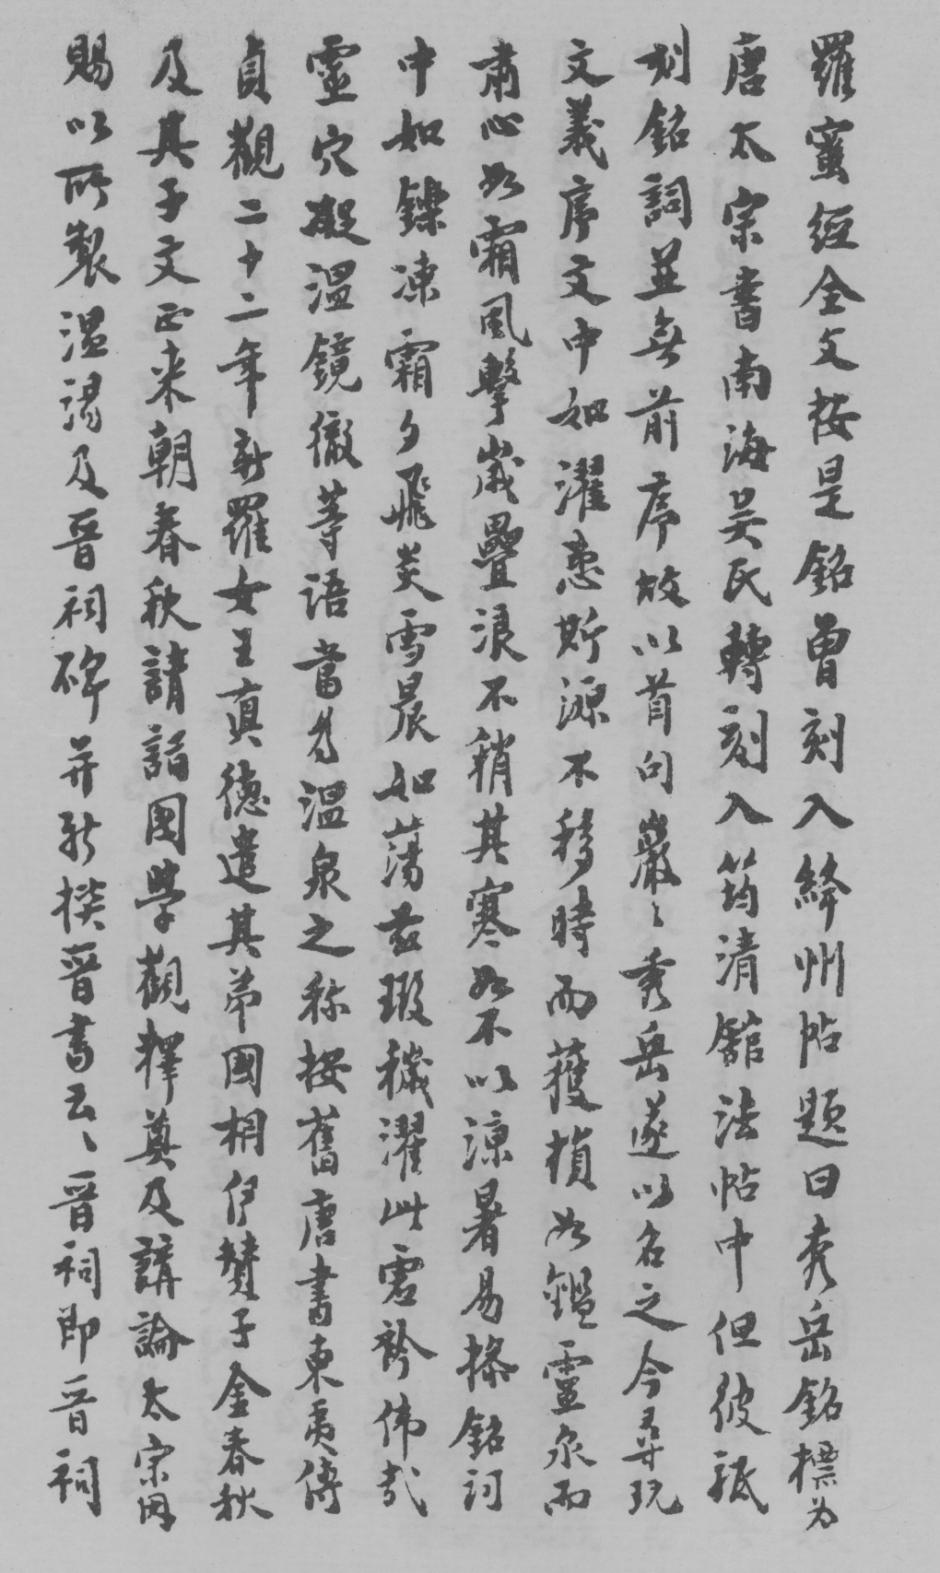 羅蜜經全文按是銘曾刻入絳州帖題曰秀岳銘標為
唐太宗書南海吴氏轉刻入筠清舘法帖中但彼祗
刻銘詞並無前序故以首句巖〻秀岳遂以名之今尋玩
文義序文中如濯患斯源不移時而獲損如鑑靈泉而
肅心如霜風擊嵗疊浪不稍其寒如不以涼暑易操銘詞
中如鑠凍霜夕飛炎雪晨如蕩兹瑕穢濯此雰衿偉哉
靈穴凝温鏡徹等語當為温泉之称按舊唐書東夷傳
貞觀二十二年新羅女王真德遣其弟國相伊賛子金春秋
及其子文正来朝春秋請詣國學觀釋奠及講論太宗因
賜以所製温湯及晉祠碑并新撰晉書云〻晉祠即晉祠